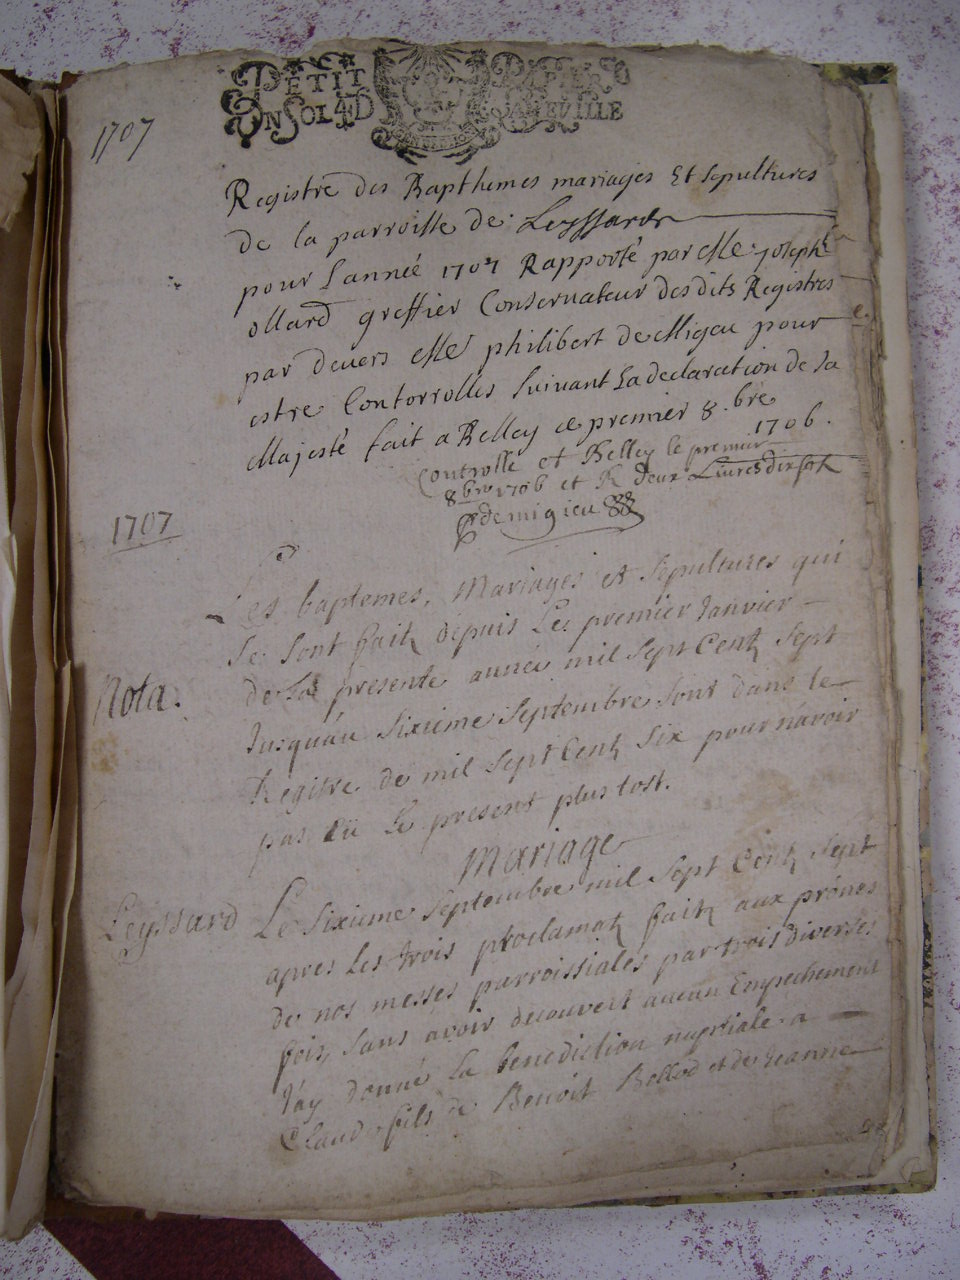 PETIT PAPIER
UN SOL 4D LEVILLE
1707
Registre des Bapthemes mariages Et sepultures
de la parroisse de Leyssard
pour Lannée 1707 Rapporté par Me Joseph
ollard greffier Conservateur des dits Registres
par devers Me philibert de Migeu pour
estre Controrrolles suivant La declaration de sa
Majesté fait a Belley ce premier 8.bre
1706.
Controlle et Belley le premier
8bre 1706 et R deux Livres dix sols
demigieu
1707
Les baptemes, Mariages et Sepultures qui
Se sont faitz depuis Le premier Janvier
de La presente année mil Sept Centz Sept
Nota.
Jusquau Sixième Septembre Sont dans le
Registre de mil Sept Centz Six pour n'avoir
pas eü Le present plus tost.
Mariage
Leyssard Le Sixieme Septembre mil Sept Centz Sept
apres Les trois proclamatz faitz aux prônes
de nos messes parroissiales par trois diverses
fois, Sans avoir decouvert aucun Empechement
J'ay donné La benediction nuptiale a
Claud fils de Benoit Bollod et de Jeanne